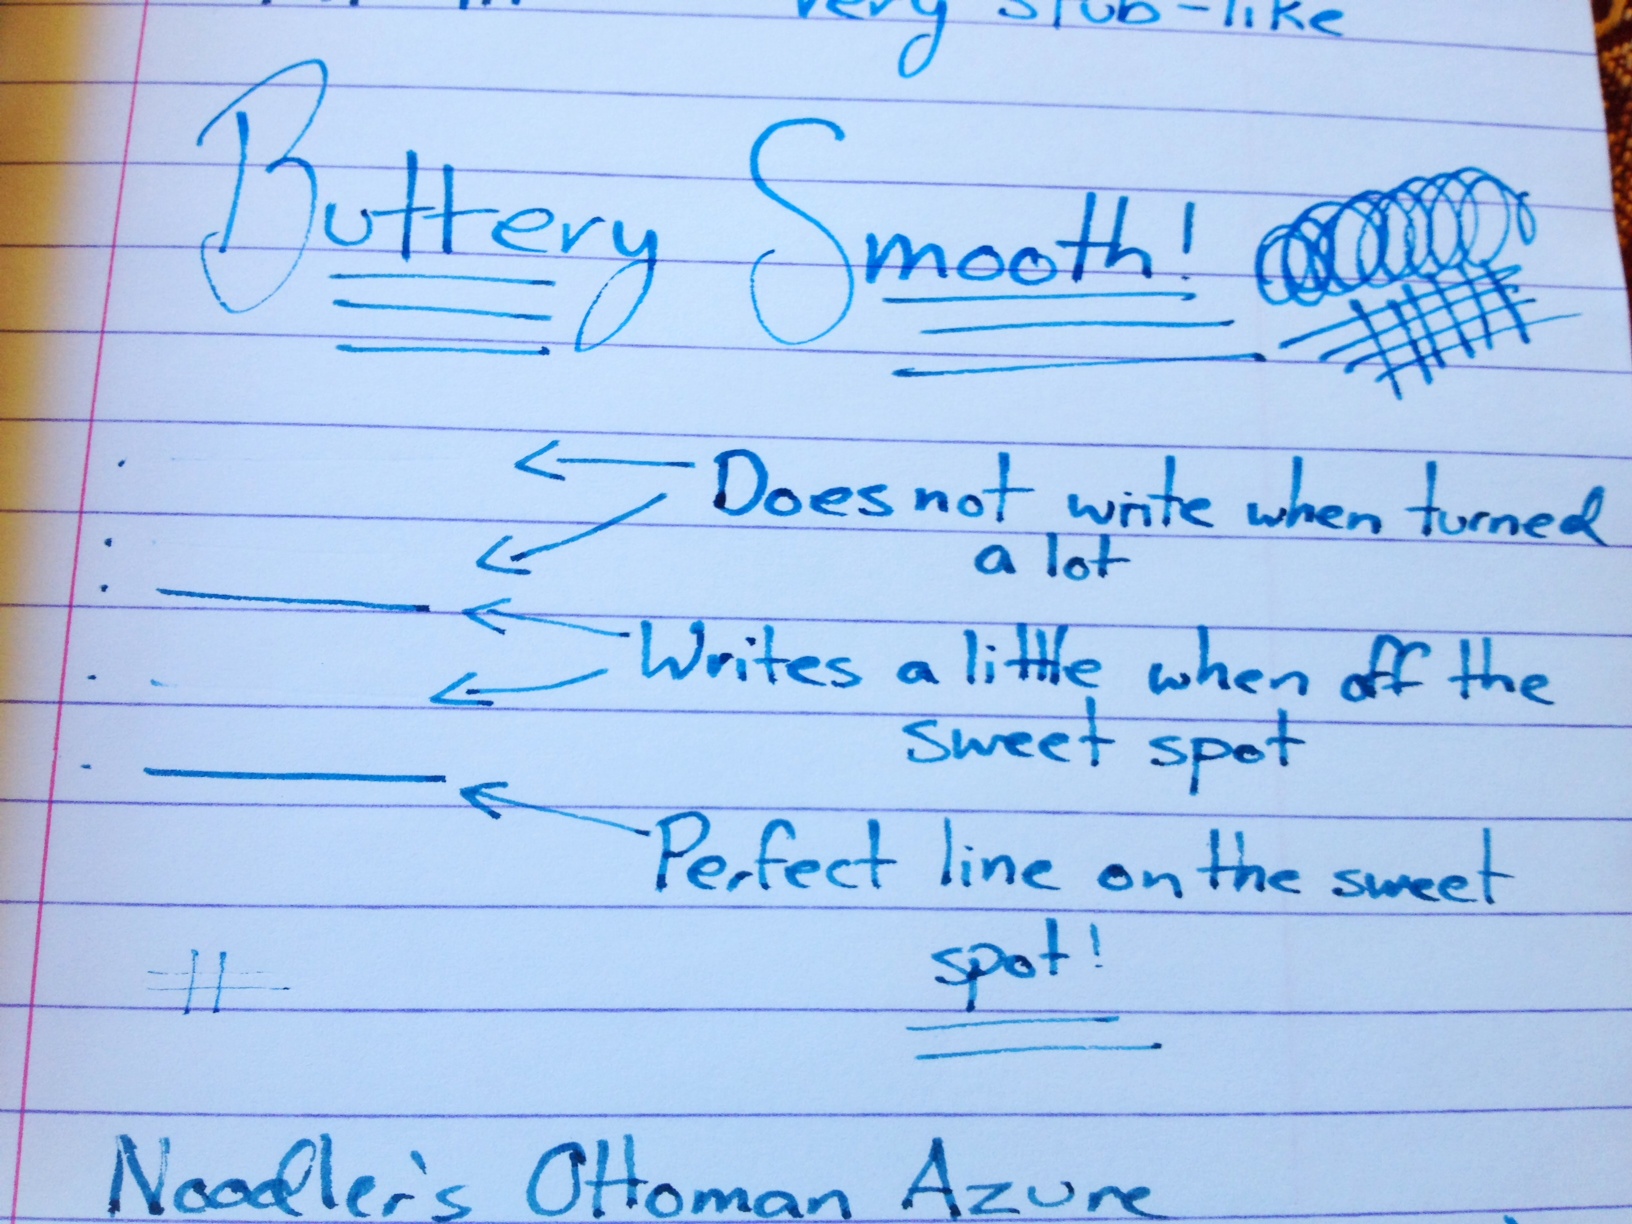 very stub-like
Buttery Smooth!
Does not write when turned
a lot
Writes a little when off the
sweet spot
Perfect line on the sweet
spot!
Noodler's Ottoman Azure